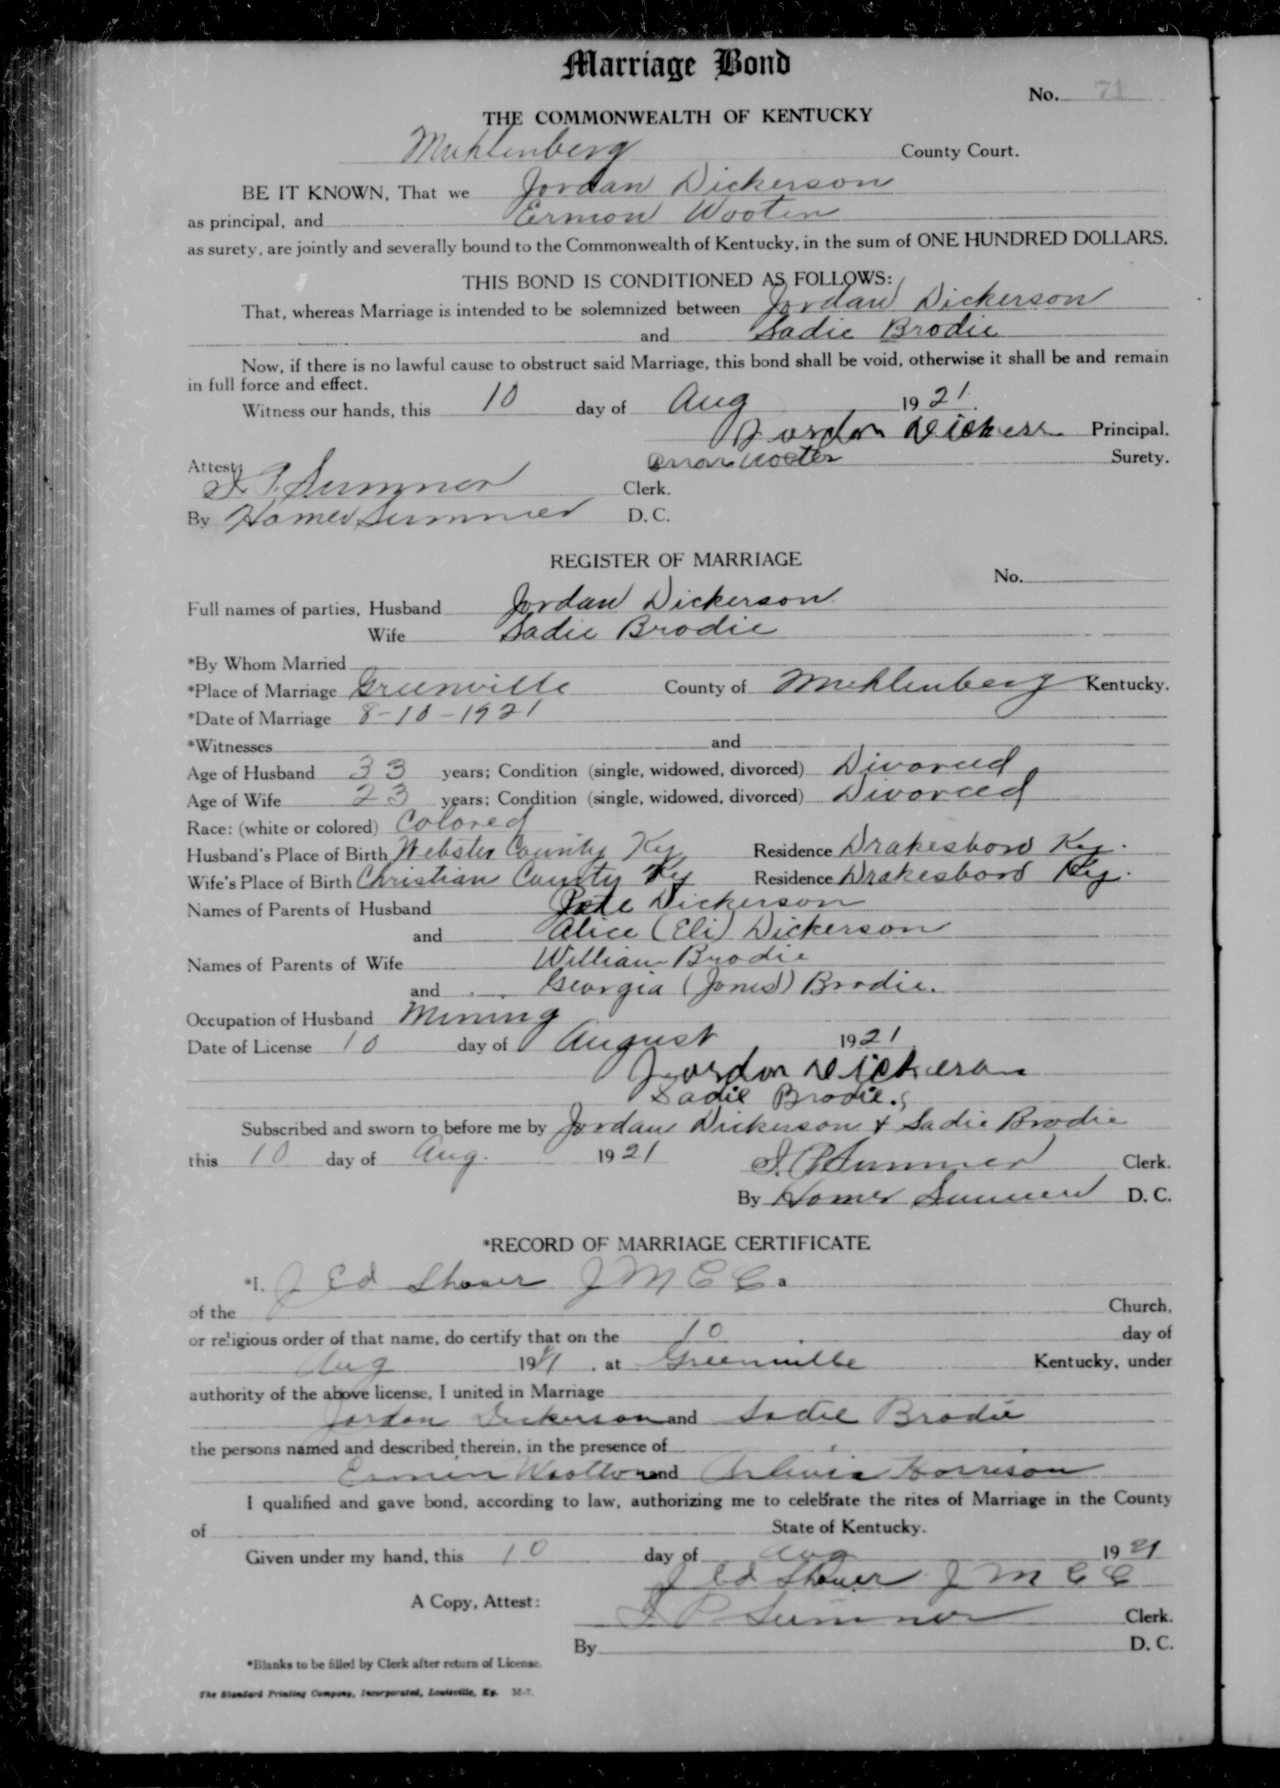 Marriage Bond
No. 71
THE COMMONWEALTH OF KENTUCKY
Muhlenberg County Court.
BE IT KNOWN, That we Jordan Dickerson
as principal, and Ermon Wooten
as surety, are jointly and severally bound to the Commonwealth of Kentucky, in the sum of ONE HUNDRED DOLLARS.
THIS BOND IS CONDITIONED AS FOLLOWS:
That, whereas Marriage is intended to be solemnized between Jordan Dickerson
and Sadie Brodie
Now, if there is no lawful cause to obstruct said Marriage, this bond shall be void, otherwise it shall be and remain
in full force and effect.
Witness our hands, this 10 day of Aug 1921.
Jordon Principal.
Surety.
Attest:
Summer Clerk.
By Homer Summer D. C.
REGISTER OF MARRIAGE
No.
Full names of parties, Husband Jordan Dickerson
Wife Sadie Brodie
*By Whom Married
*Place of Marriage Greenville County of Muhlenberg Kentucky.
*Date of Marriage 8-10-1921
*Witnesses and
Age of Husband 33 years; Condition (single, widowed, divorced) Divorced
Age of Wife 23 years; Condition (single, widowed, divorced) Divorced
Race: (white or colored) Colored
Husband's Place of Birth Webster County Ky Residence Drakesboro Ky.
Wife's Place of Birth Christian County Ky Residence Drakesboro Ky.
Names of Parents of Husband Pete Dickerson
and Alice (Eli) Dickerson
Names of Parents of Wife William Brodie
and Georgia (Jones) Brodie.
Occupation of Husband Mining
Date of License 10 day of August 1921
Jordon Dickerson
Sadie Brodie.
Subscribed and sworn to before me by Jordan Dickerson & Sadie Brodie
this 10 day of Aug. 1921
Summer Clerk.
By Homer Summer D. C.
*RECORD OF MARRIAGE CERTIFICATE
*I, J Ed Shaver J M C C a
of the Church,
or religious order of that name, do certify that on the 10 day of
Aug 1921, at Greenville Kentucky, under
authority of the above license, I united in Marriage
Jordon Dickerson and Sadie Brodie
the persons named and described therein, in the presence of
Ermin Wootton and Harrison
I qualified and gave bond, according to law, authorizing me to celebrate the rites of Marriage in the County
of State of Kentucky.
Given under my hand, this 10 day of Aug 1921
J Ed Shaver J M C C
A Copy, Attest:
Summer Clerk.
By D. C.
*Blanks to be filled by Clerk after return of License.
The Standard Printing Company, Incorporated, Louisville, Ky. M-7.